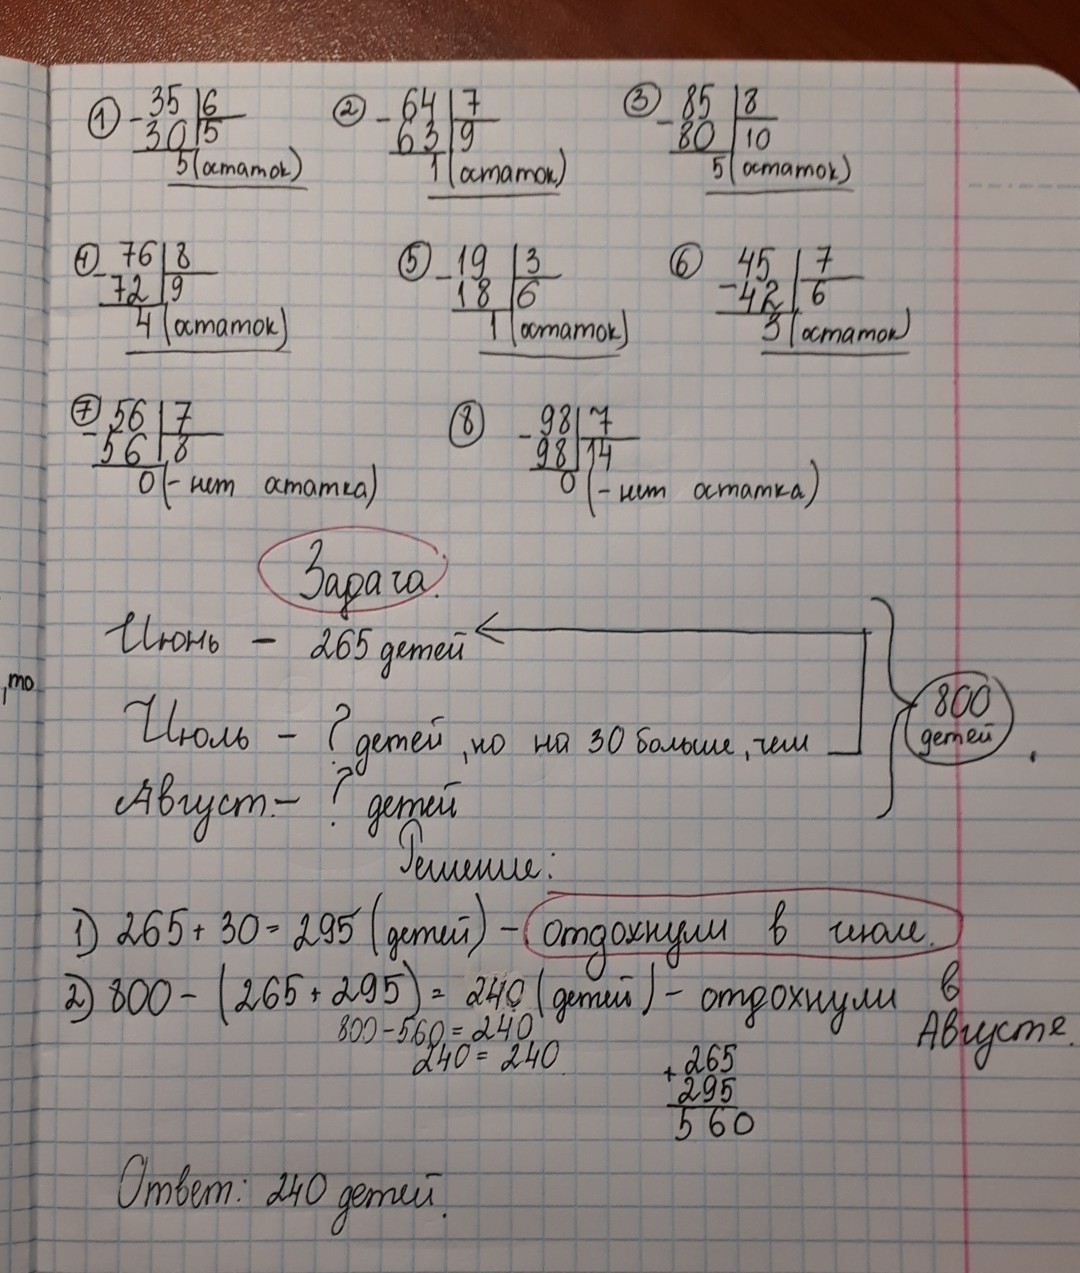 ① - 35 | 6 ② - 64 | 7 ③ - 85 | 8
30 | 5 63 | 9 80 | 10
5 (остаток) 1 (остаток) 5 (остаток)
④ - 76 | 8 ⑤ - 19 | 3 ⑥ - 45 | 7
72 | 9 18 | 6 42 | 6
4 (остаток) 1 (остаток) 3 (остаток)
⑦ - 56 | 7 ⑧ - 98 | 7
56 | 8 98 | 14
0 (- нет остатка) 0 (- нет остатка)
Задача.
Июнь - 265 детей
,то
Июль - ? детей, но на 30 больше, чем
800
детей
Август - ? детей
Решение:
1) 265 + 30 = 295 (детей) - отдохнули в июле.
2) 800 - (265 + 295) = 240 (детей) - отдохнули в
Августе.
800 - 560 = 240
240 = 240
+ 265
295
560
Ответ: 240 детей.